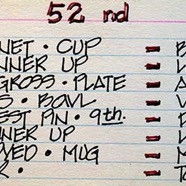 52 nd
NET • CUP -
NNER UP -
GROSS • PLATE -
S • BOWL -
EST PIN • 9th. -
NNER UP -
VED • MUG - M
R • - T